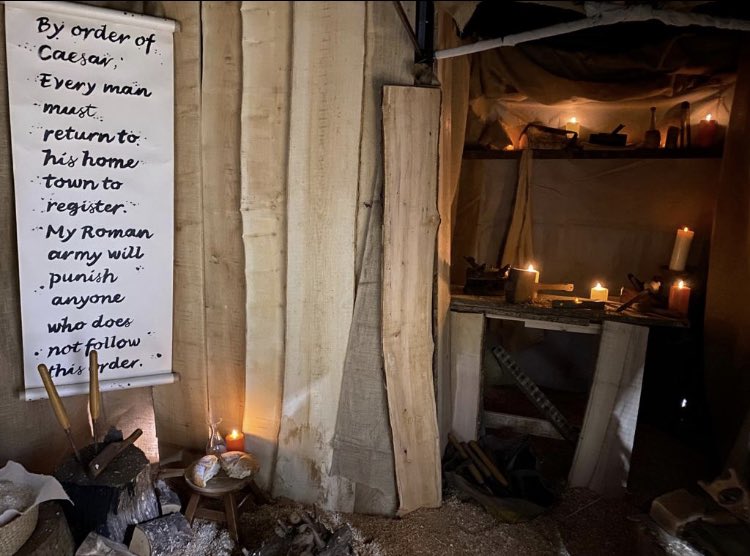 By order of
Caesar,
Every man
must
return to
his home
town to
register.
My Roman
army will
punish
anyone
who does
not follow
this order.